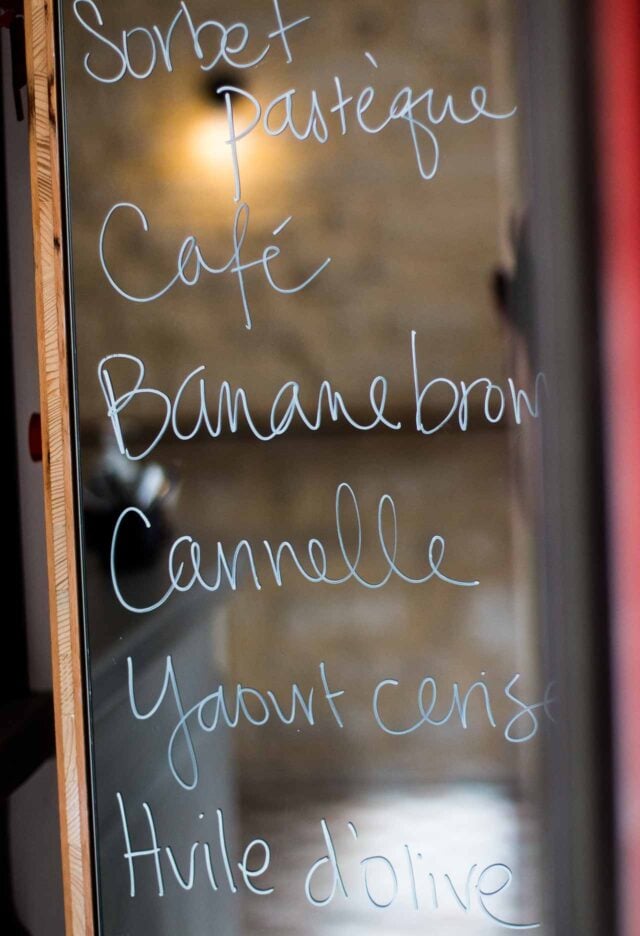 Sorbet
pastèque
Café
Banane brow
Cannelle
Yaourt ceris
Huile d'olive